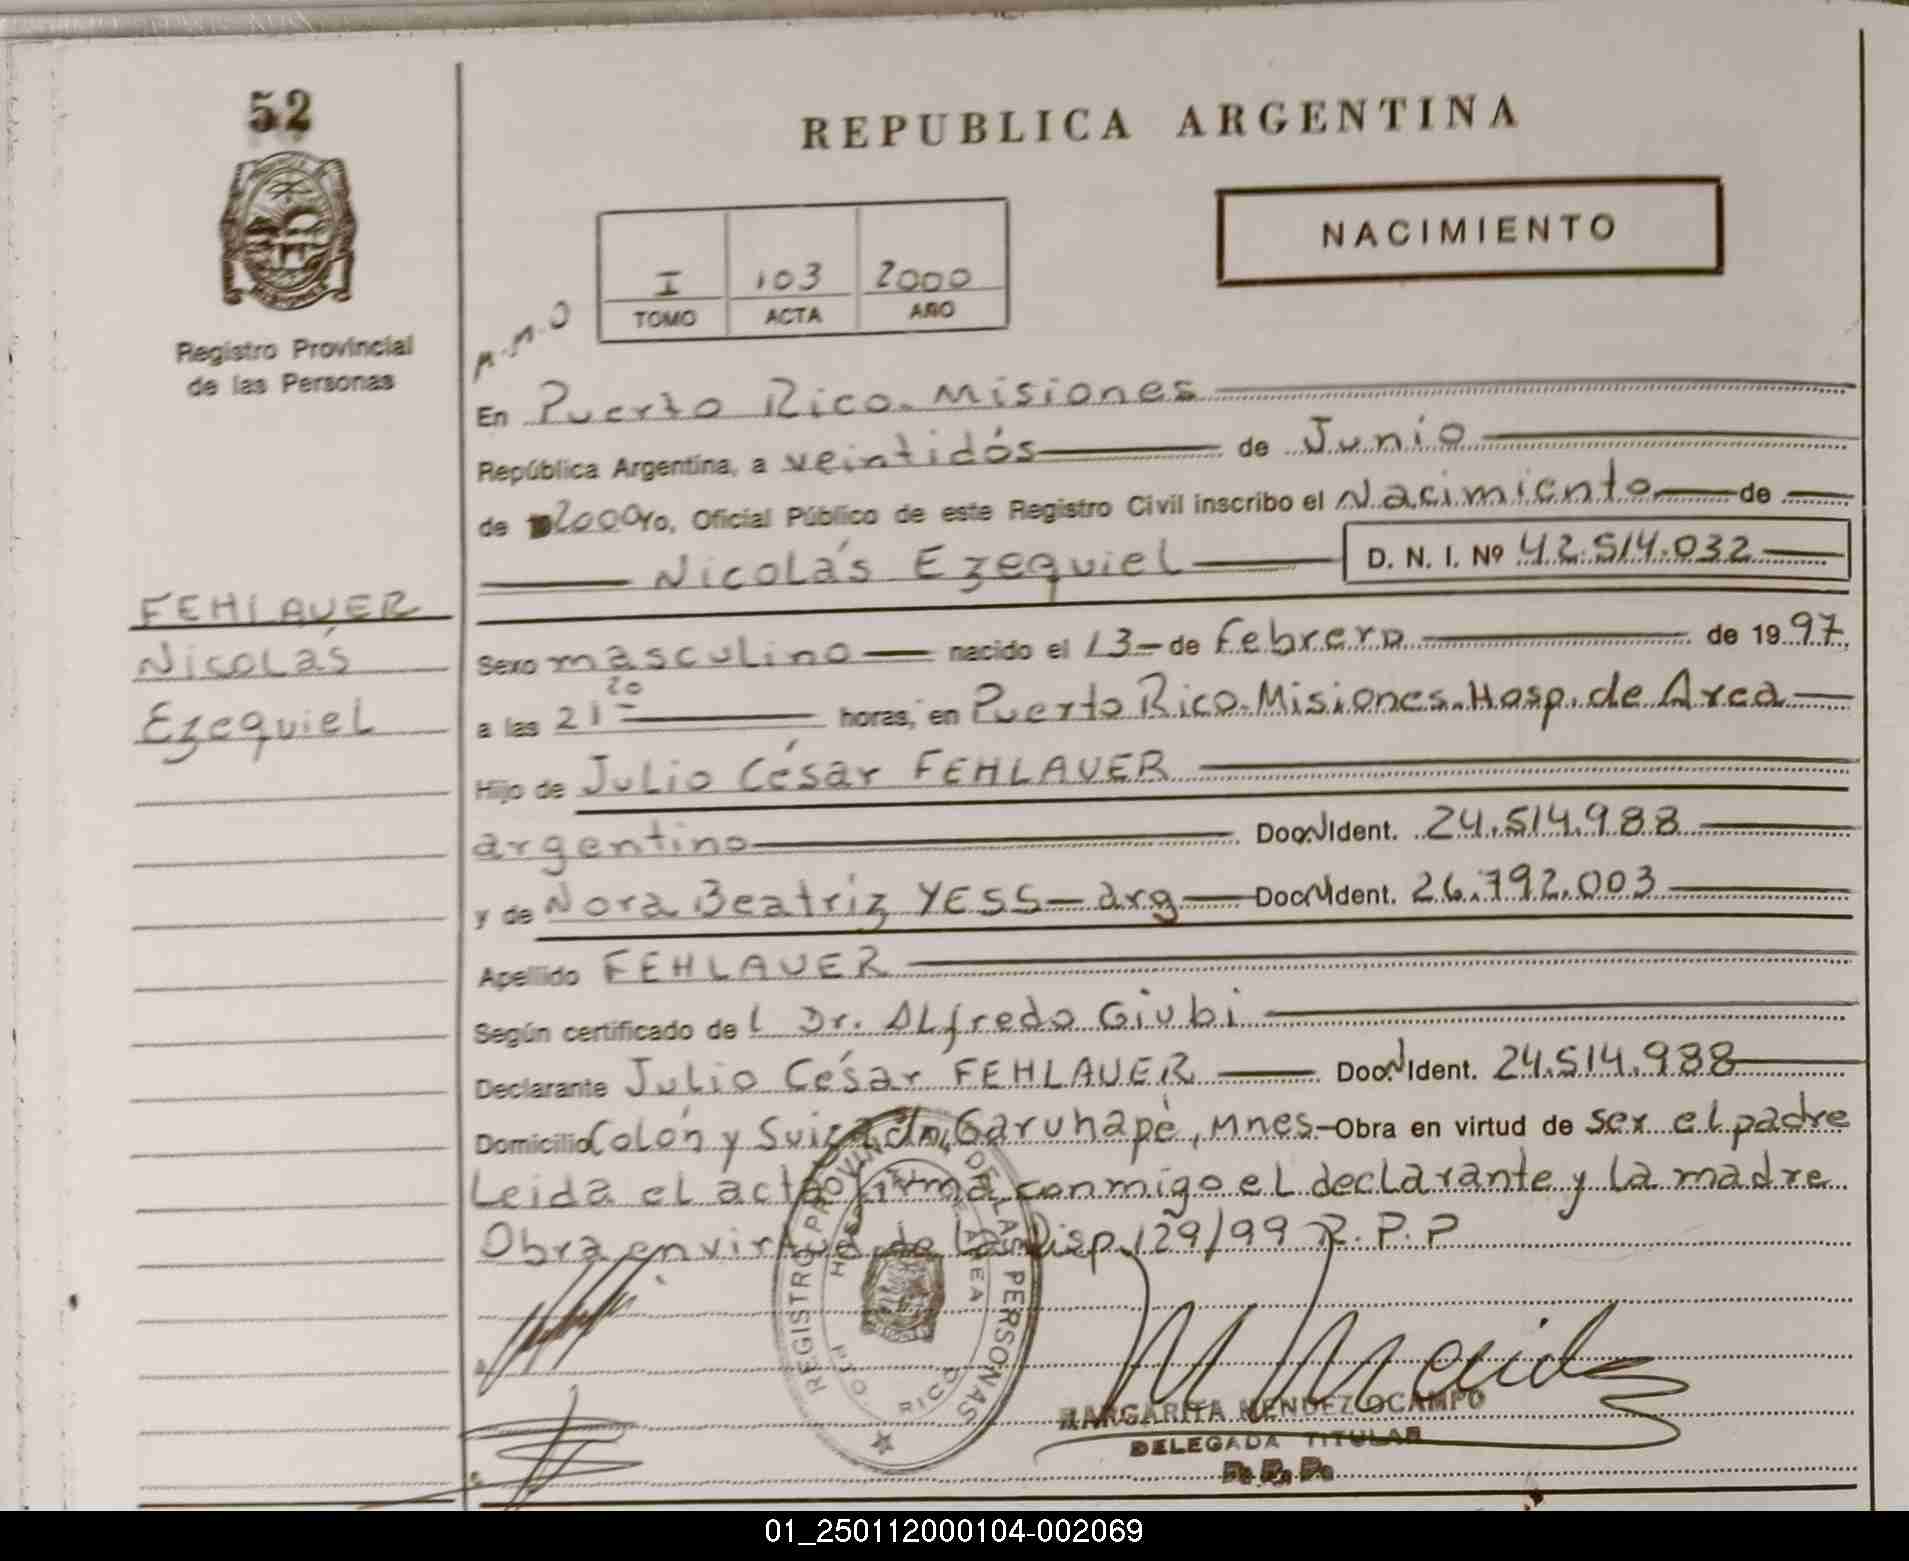 52
REPUBLICA ARGENTINA
NACIMIENTO
I 103 2000
TOMO ACTA AÑO
Registro Provincial
de las Personas
En Puerto Rico. Misiones
República Argentina, a veintidós de Junio
de 2000 Yo, Oficial Público de este Registro Civil inscribo el Nacimiento de
Nicolás Ezequiel D. N. I. Nº 42.514.032
FEHLAUER
Nicolás
Ezequiel
Sexo masculino nacido el 13 de Febrero de 1997
a las 21 20 horas, en Puerto Rico. Misiones. Hosp. de Area
Hijo de Julio César FEHLAUER
argentino Doc. N Ident. 24.514.988
y de Nora Beatriz YESS - arg Doc. N Ident. 26.792.003
Apellido FEHLAUER
Según certificado del Dr. Alfredo Giubi
Declarante Julio César FEHLAUER Doc. N Ident. 24.514.988
Domicilio Colón y Suiza Garuhapé, Mnes. Obra en virtud de ser el padre
Leida el acta firma conmigo el declarante y la madre
Obra en virtud de la Disp. 129/99 R.P.P
REGISTRO PROVINCIAL DE LAS PERSONAS
PTO. RICO
MARGARITA MENDEZ OCAMPO
DELEGADA TITULAR
01_250112000104-002069